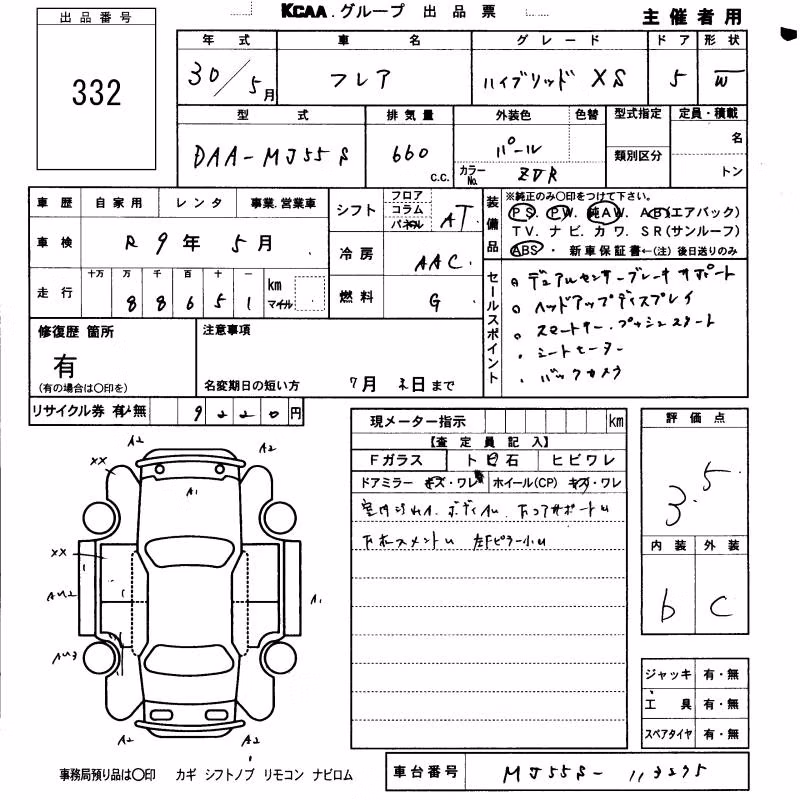 KCAA.グループ 出品票
主催者用
出品番号
332
年式 車名 グレード ドア 形状
30/5月 フレア ハイブリッド XS 5 W
型式 排気量 外装色 色替 型式指定 定員・積載
DAA-MJ55S 660 c.c. パール 名
カラーNo. ZVR 類別区分 トン
車歴 自家用 レンタ 事業.営業車
車検 R 9年 5月
走行 十万 万 千 百 十 一
88651 km マイル
シフト フロア コラム パネル AT
冷房 AAC
燃料 G
装備品 ※純正のみ〇印をつけて下さい。
PS. PW. 純AW. AB(エアバック)
TV. ナビ. カワ. SR(サンルーフ)
ABS ・ 新車保証書←(注)後日送りのみ
セールスポイント
デュアルセンサーブレーキサポート
ヘッドアップディスプレイ
スマートキー.プッシュスタート
シートヒーター
バックカメラ
修復歴 箇所
有
(有の場合は〇印を)
注意事項
名変期日の短い方 7月 末日まで
リサイクル券 有・無 9220円
現メーター指示 km
【査定員記入】
Fガラス トビ石 ヒビワレ
ドアミラー キズ・ワレ ホイール(CP) キズ・ワレ
評価点
3.5
内装 外装
b C
A2 A2
XX A1
XX
AU2 A1
AU3
A2 A2
ジャッキ 有・無
工具 有・無
スペアタイヤ 有・無
事務局預り品は〇印 カギ シフトノブ リモコン ナビロム
車台番号 MJ55S-113275